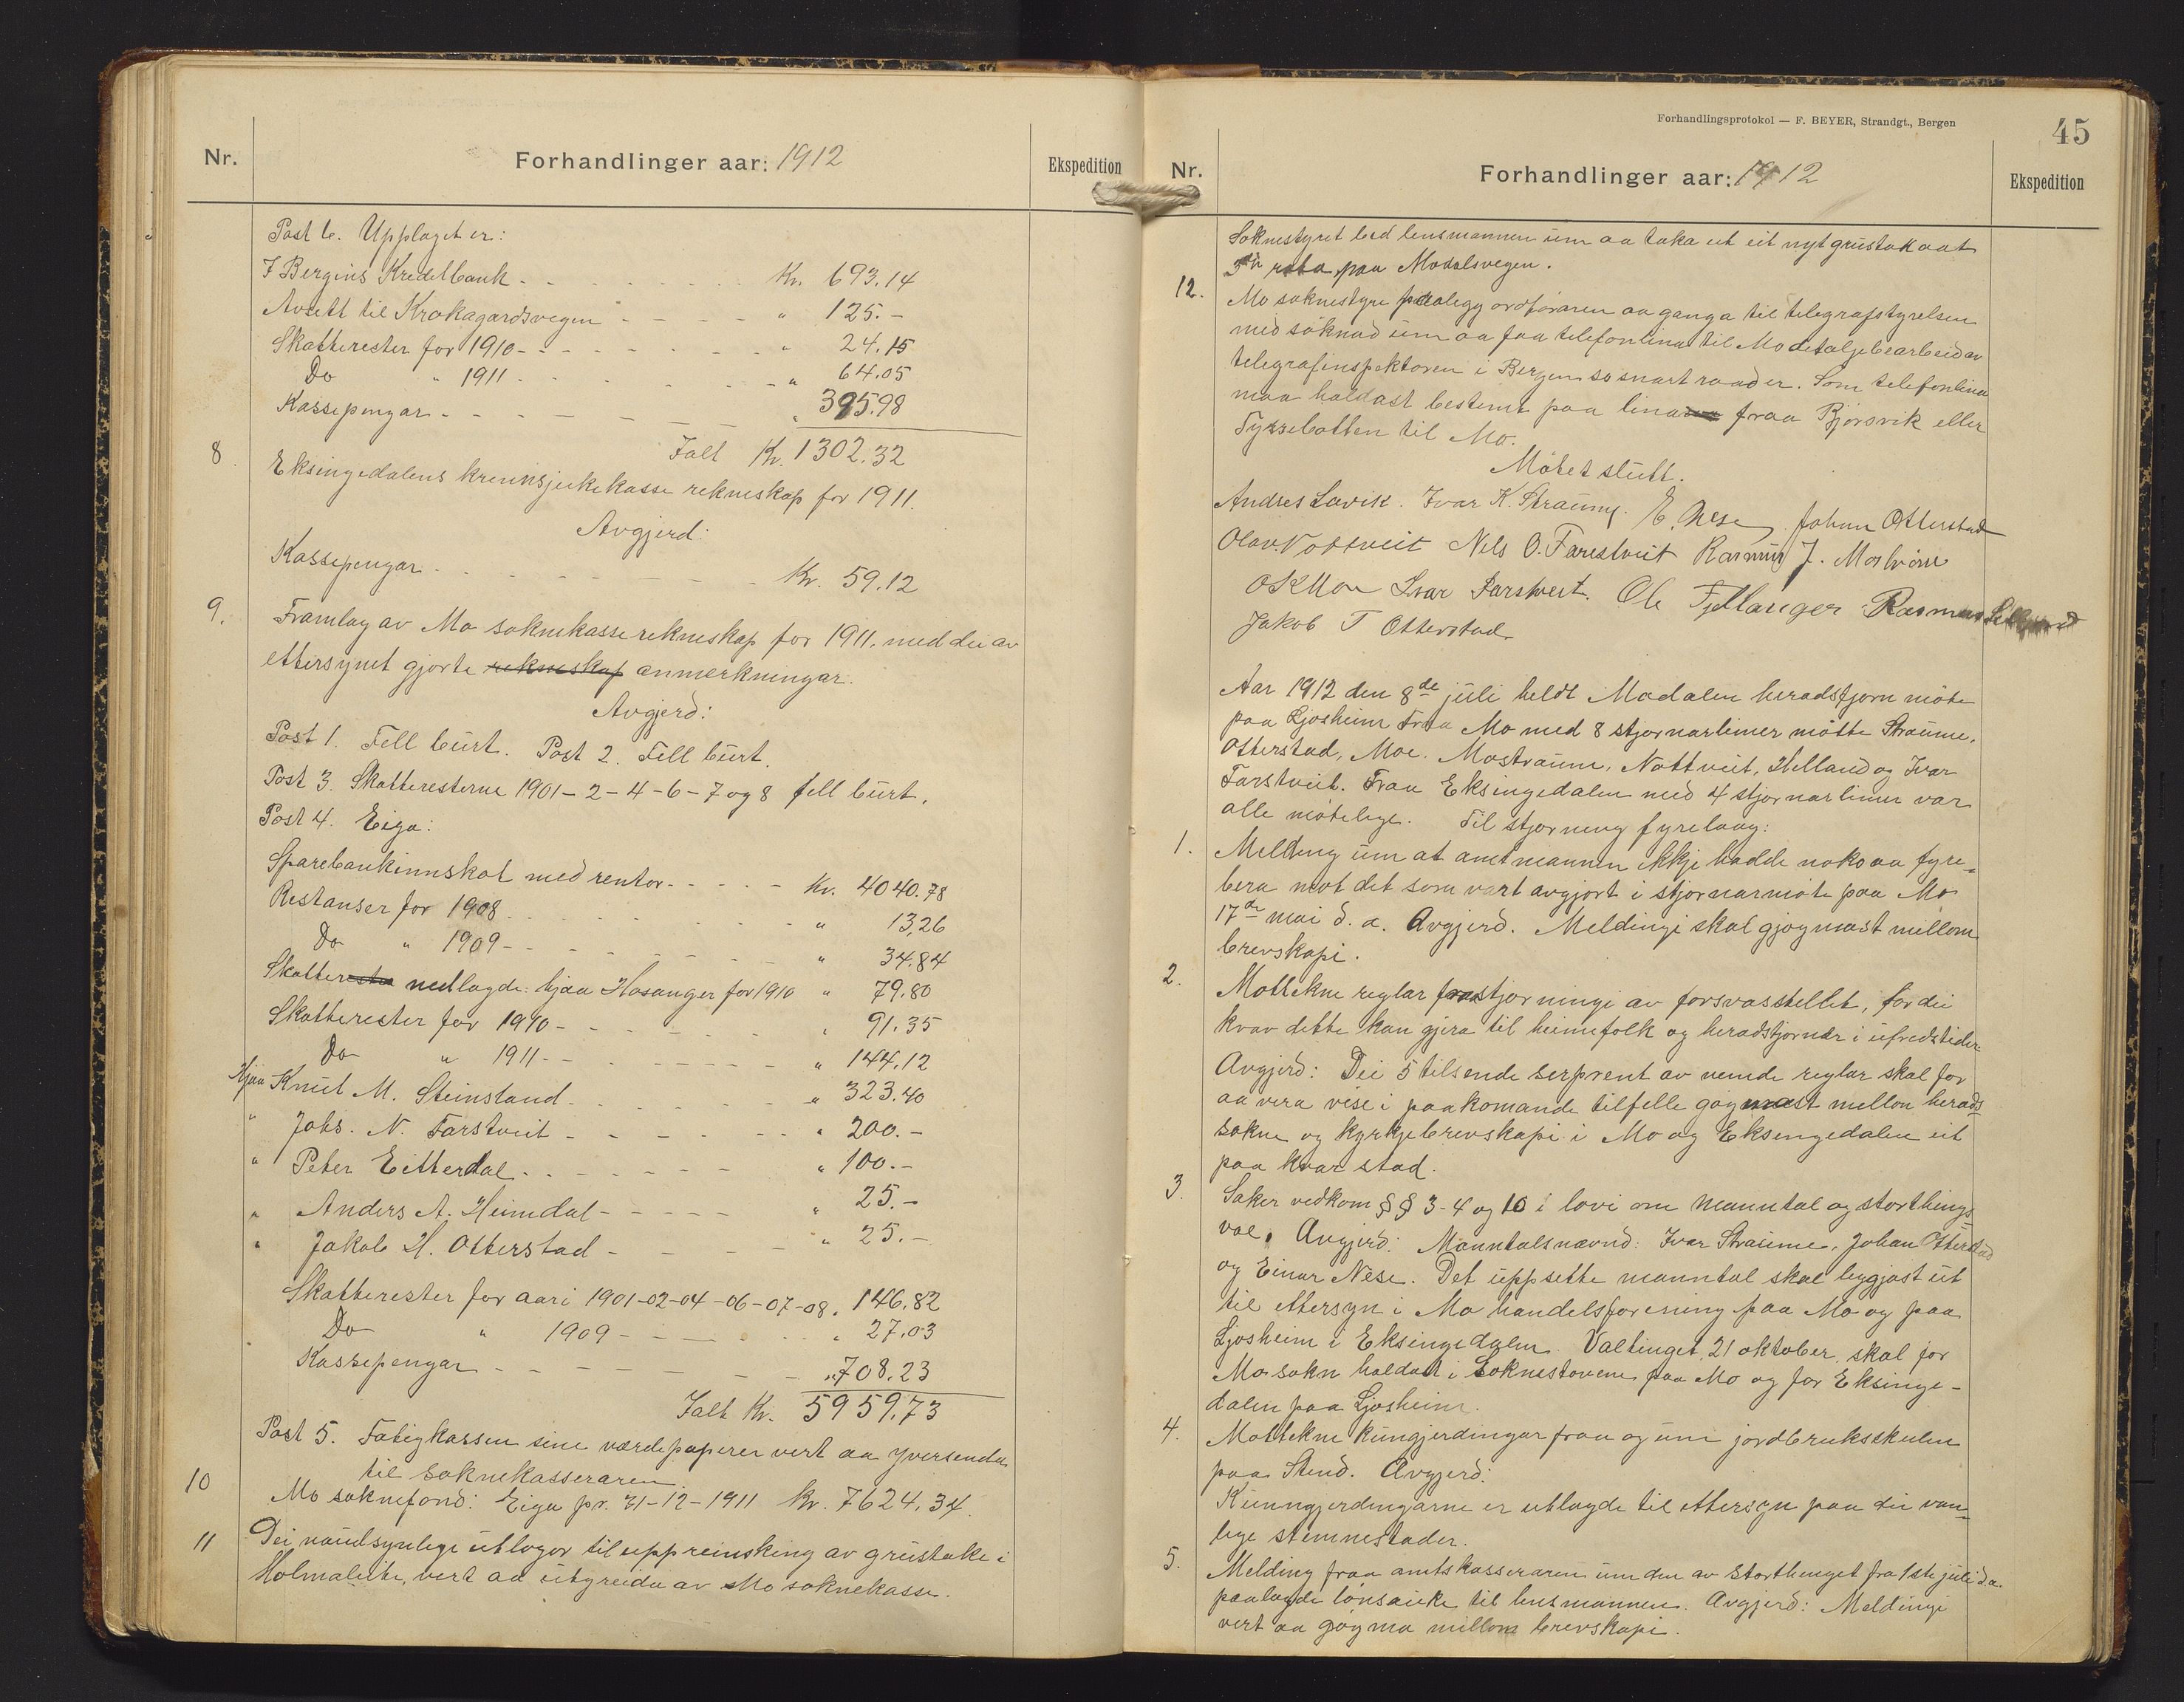 Nr.
Forhandlinger aar: 1912
Ekspedition
Post 6. Upplaget er:
I Bergens Kreditbank - - - - Kr. 693.14
Avsett til Krokagardsvegen - - - - " 125.-
Skatterester for 1910 - - - - " 24.15
Do " 1911 - - - - " 64.05
Kassepengar - - - - " 395.98
Ialt Kr. 1302.32
8.
Eksingedalens krinssjukekasse rekneskap for 1911.
Avgjerd:
Kassepengar - - - - Kr. 59.12
9.
Framlag av Mo soknekasserekneskap for 1911, med dei av
ettersynet gjorte rekneskap anmerkningar.
Avgjerd:
Post 1. Fell burt. Post 2. Fell burt.
Post 3. Skatteresterne 1901-2-4-6-7 og 8 fell burt.
Post 4. Eiga:
Sparebankinnskot med rentor - - - - Kr. 4040.78
Restanser for 1908 - - - - " 13.26
Do " 1909 - - - - " 34.84
Skatter nedlagde hjaa Hosanger for 1910 " 79.80
Skatterester for 1910 - - - - " 91.35
Do " 1911 - - - - " 144.12
Hjaa Knut M. Steinsland - - - - " 323.40
" Johs. N. Farstveit - - - - " 200.-
" Peter Eitterdal - - - - " 100.-
" Anders A. Heimdal - - - - " 25.-
" Jakob H. Otterstad - - - - " 25.-
Skatterester for aari 1901-02-04-06-07-08. 146.82
Do " 1909 - - - - " 27.03
Kassepengar - - - - " 708.23
Ialt Kr. 5959.73
Post 5. Fatigkassen sine værdepaperer vert aa yversenda
til soknekasseraren.
10
Mo soknefond: Eiga pr. 31-12-1911 Kr. 7624.34.
11
Dei naudsynlege utlogor til uppreinsking av grustake i
Holmaleite, vert aa utgreida av Mo soknekasse.
Forhandlingsprotokol — F. BEYER, Strandgt., Bergen
45
Nr.
Forhandlinger aar: 1912
Ekspedition
Soknestyret bed lensmannen um aa taka ut eit nytt grustak aat
3dje rota paa Modalsvegen.
12.
Mo soknestyre paalegg ordføraren aa ganga til telegrafstyrelsen
med søknad um aa faa telefonlina til Mo detaljebearbeid av
telegrafinspektøren i Bergen so snart raad er. Som telefonlina
maa haldast bestemt paa lina fraa Bjørsvik eller
Tyssebotten til Mo.
Møtet slutt.
Andres Lavik. Ivar K. Straume. E. Nese. Johan Otterstad
Olav Nottveit Nels O. Farestveit Rasmus J. Mostraum
O K Moe Ivar Farstveit. Ole Fjellanger Rasmus Helland
Jakob T Otterstad
Aar 1912 den 8de juli heldt Modalen heradstjorn møte
paa Ljosheim. Fraa Mo med 8 stjornarlimer møtte Straume,
Otterstad, Moe, Mostraum, Nottveit, Helland og Ivar
Farstveit. Fraa Eksingedalen med 4 stjornarlimer var
alle møtelege. Til stjorning fyrelaag:
1.
Melding um at amtmannen ikkje hadde noko aa fyre-
bera mot det som vart avgjort i stjornarmøte paa Mo
17de mai d. a. Avgjerd. Meldingi skal gjøymast millom
brevskapi.
2.
Mottekne reglar fraa stjorningi av forsvarsstellet, for dei
krav dette kan gjera til heimefolk og heradstjornar i ufredstider
Avgjerd: Dei 5 tilsende serprent av nemde reglar skal for
aa vera vise i paakomande tilfelle gøymast mellon herads
sokne og kyrkjebrevskapi i Mo og Eksingedalen eit
paa kvar stad.
3.
Saker vedkom §§ 3-4 og 10 i lovi om manntal og storthings
val. Avgjerd: Manntalsnævnd: Ivar Straume, Johan Otterstad
og Einar Nese. Det uppsette manntal skal leggjast ut
til ettersyn i Mo handelsforening paa Mo og paa
Ljosheim i Eksingedalen. Valtinget, 21 oktober, skal for
Mo sokn haldast i Soknestovene paa Mo og for Eksinge-
dalen paa Ljosheim.
4.
Mottekne kungjerdingar fraa og um jordbruksskulen
paa Stend. Avgjerd:
Kunngjerdingarne er utlagde til ettersyn paa dei van-
lege stemnestader.
5.
Melding fraa amtskasseraren um den av Storthinget fra 1ste juli d.a.
paalagde lønsauke til lensmannen. Avgjerd: Meldingi
vert aa gøyma millom brevskapi.